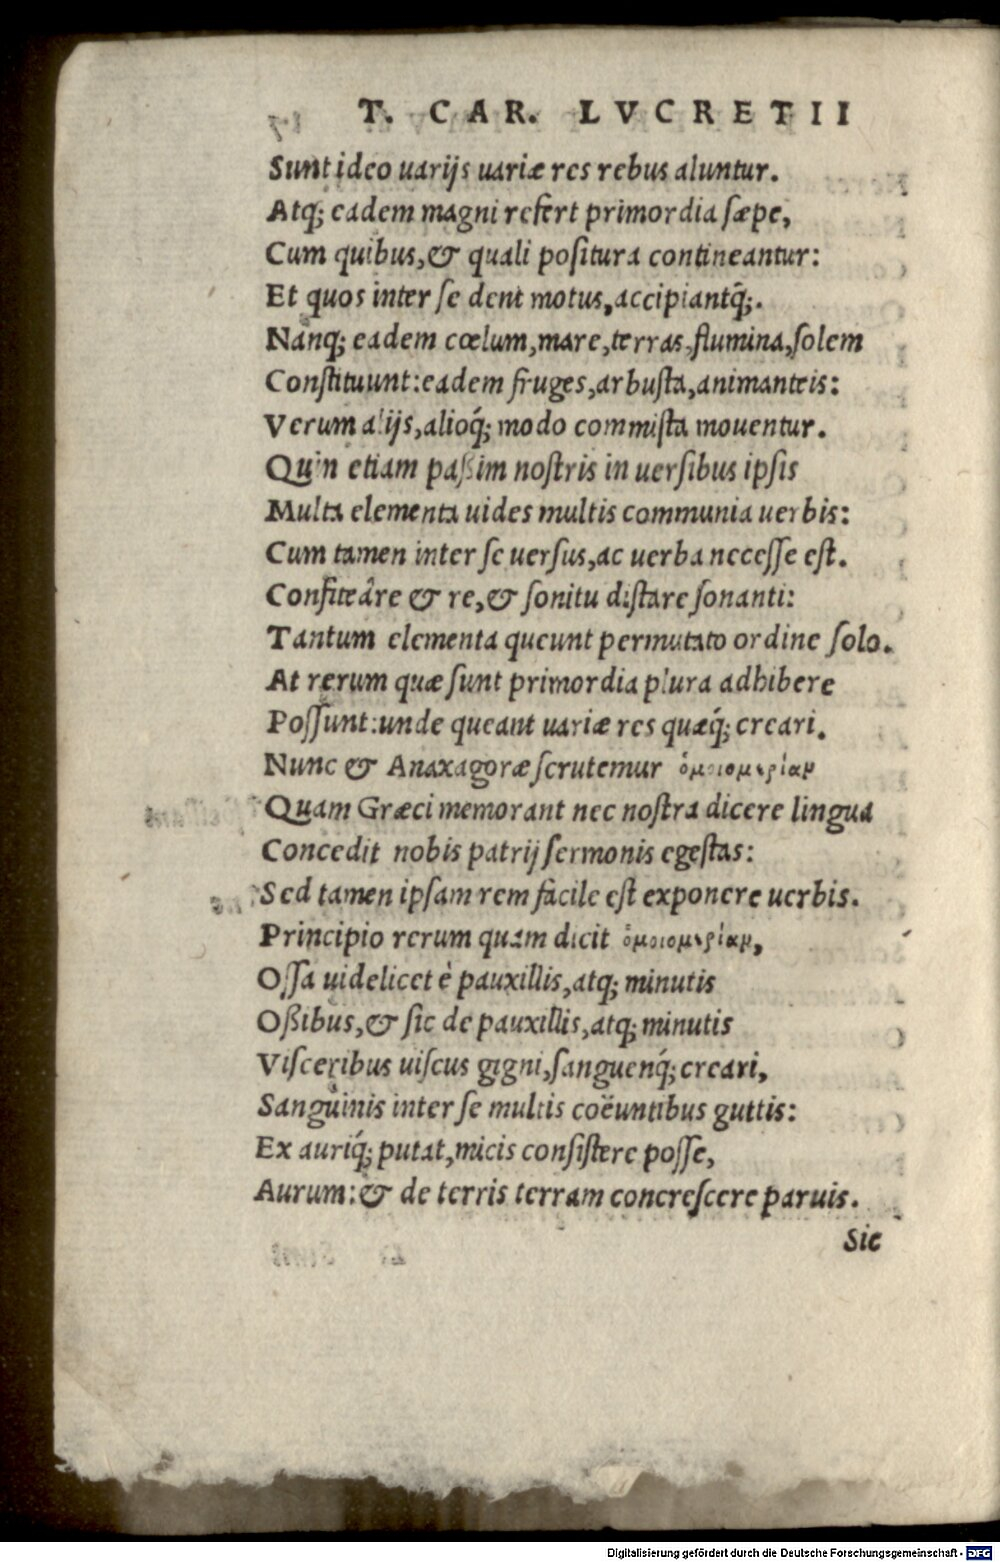 T. CAR. LVCRETII
Sunt ideo uarijs uariæ res rebus aluntur.
Atq; eadem magni refert primordia sæpe,
Cum quibus, & quali positura contineantur:
Et quos inter se dent motus, accipiantq́;.
Nanq; eadem cœlum, mare, terras, flumina, solem
Constituunt: eadem fruges, arbusta, animanteis:
Verum alijs, alioq́; modo commista mouentur.
Quin etiam paßim nostris in uersibus ipsis
Multa elementa uides multis communia uerbis:
Cum tamen inter se uersus, ac uerba necesse est.
Confiteâre & re, & sonitu distare sonanti:
Tantum elementa queunt permutato ordine solo.
At rerum quæ sunt primordia plura adhibere
Possunt: unde queant uariæ res quæq́; creari.
Nunc & Anaxagoræ scrutemur ὁμοιομερίαν
Quam Græci memorant nec nostra dicere lingua
Concedit nobis patrij sermonis egestas:
Sed tamen ipsam rem facile est exponere uerbis.
Principio rerum quam dicit ὁμοιομερίαν,
Ossa uidelicet è pauxillis, atq; minutis
Oßibus, & sic de pauxillis, atq; minutis
Visceribus uiscus gigni, sanguenq́; creari,
Sanguinis inter se multis coëuntibus guttis:
Ex auriq́; putat, micis consistere posse,
Aurum: & de terris terram concrescere paruis.
Sic
Digitalisierung gefördert durch die Deutsche Forschungsgemeinschaft - DFG